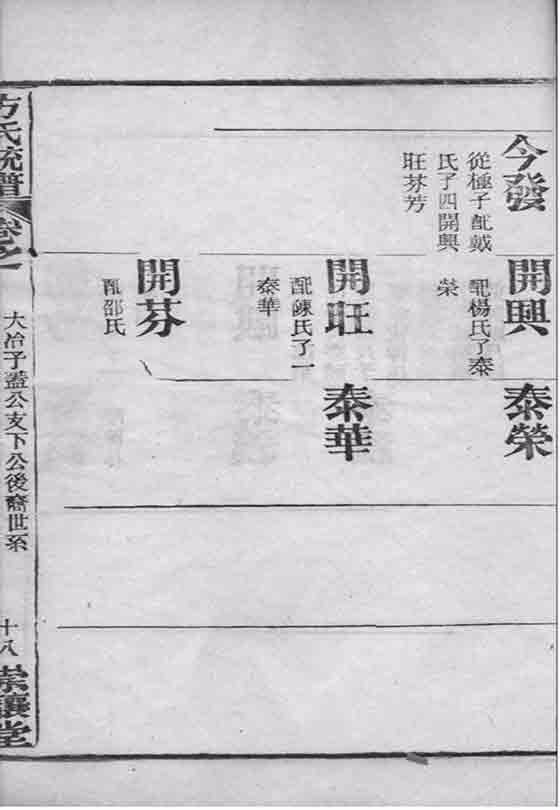 今發
從極子配戴
氏子四開興
旺芬芳
開興
配楊氏子泰
榮
開旺
配陳氏子一
泰華
開芬
配邵氏
泰榮
泰華
方氏統譜
卷之
大冶子蓋公支下公後裔世系
十八
崇讓堂